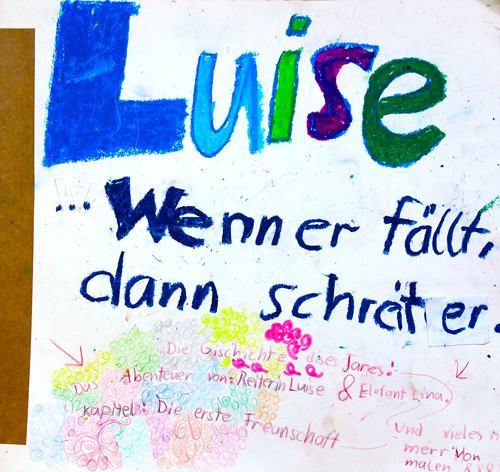 Luise
... Wenn er fällt,
dann schreit er.
Die Gischichte des Jares!
Das Abenteuer von: Reiterin Luise & Elefant Lina.
kapitel: Die erste Freunschaft
und vieles
merr von
malen &